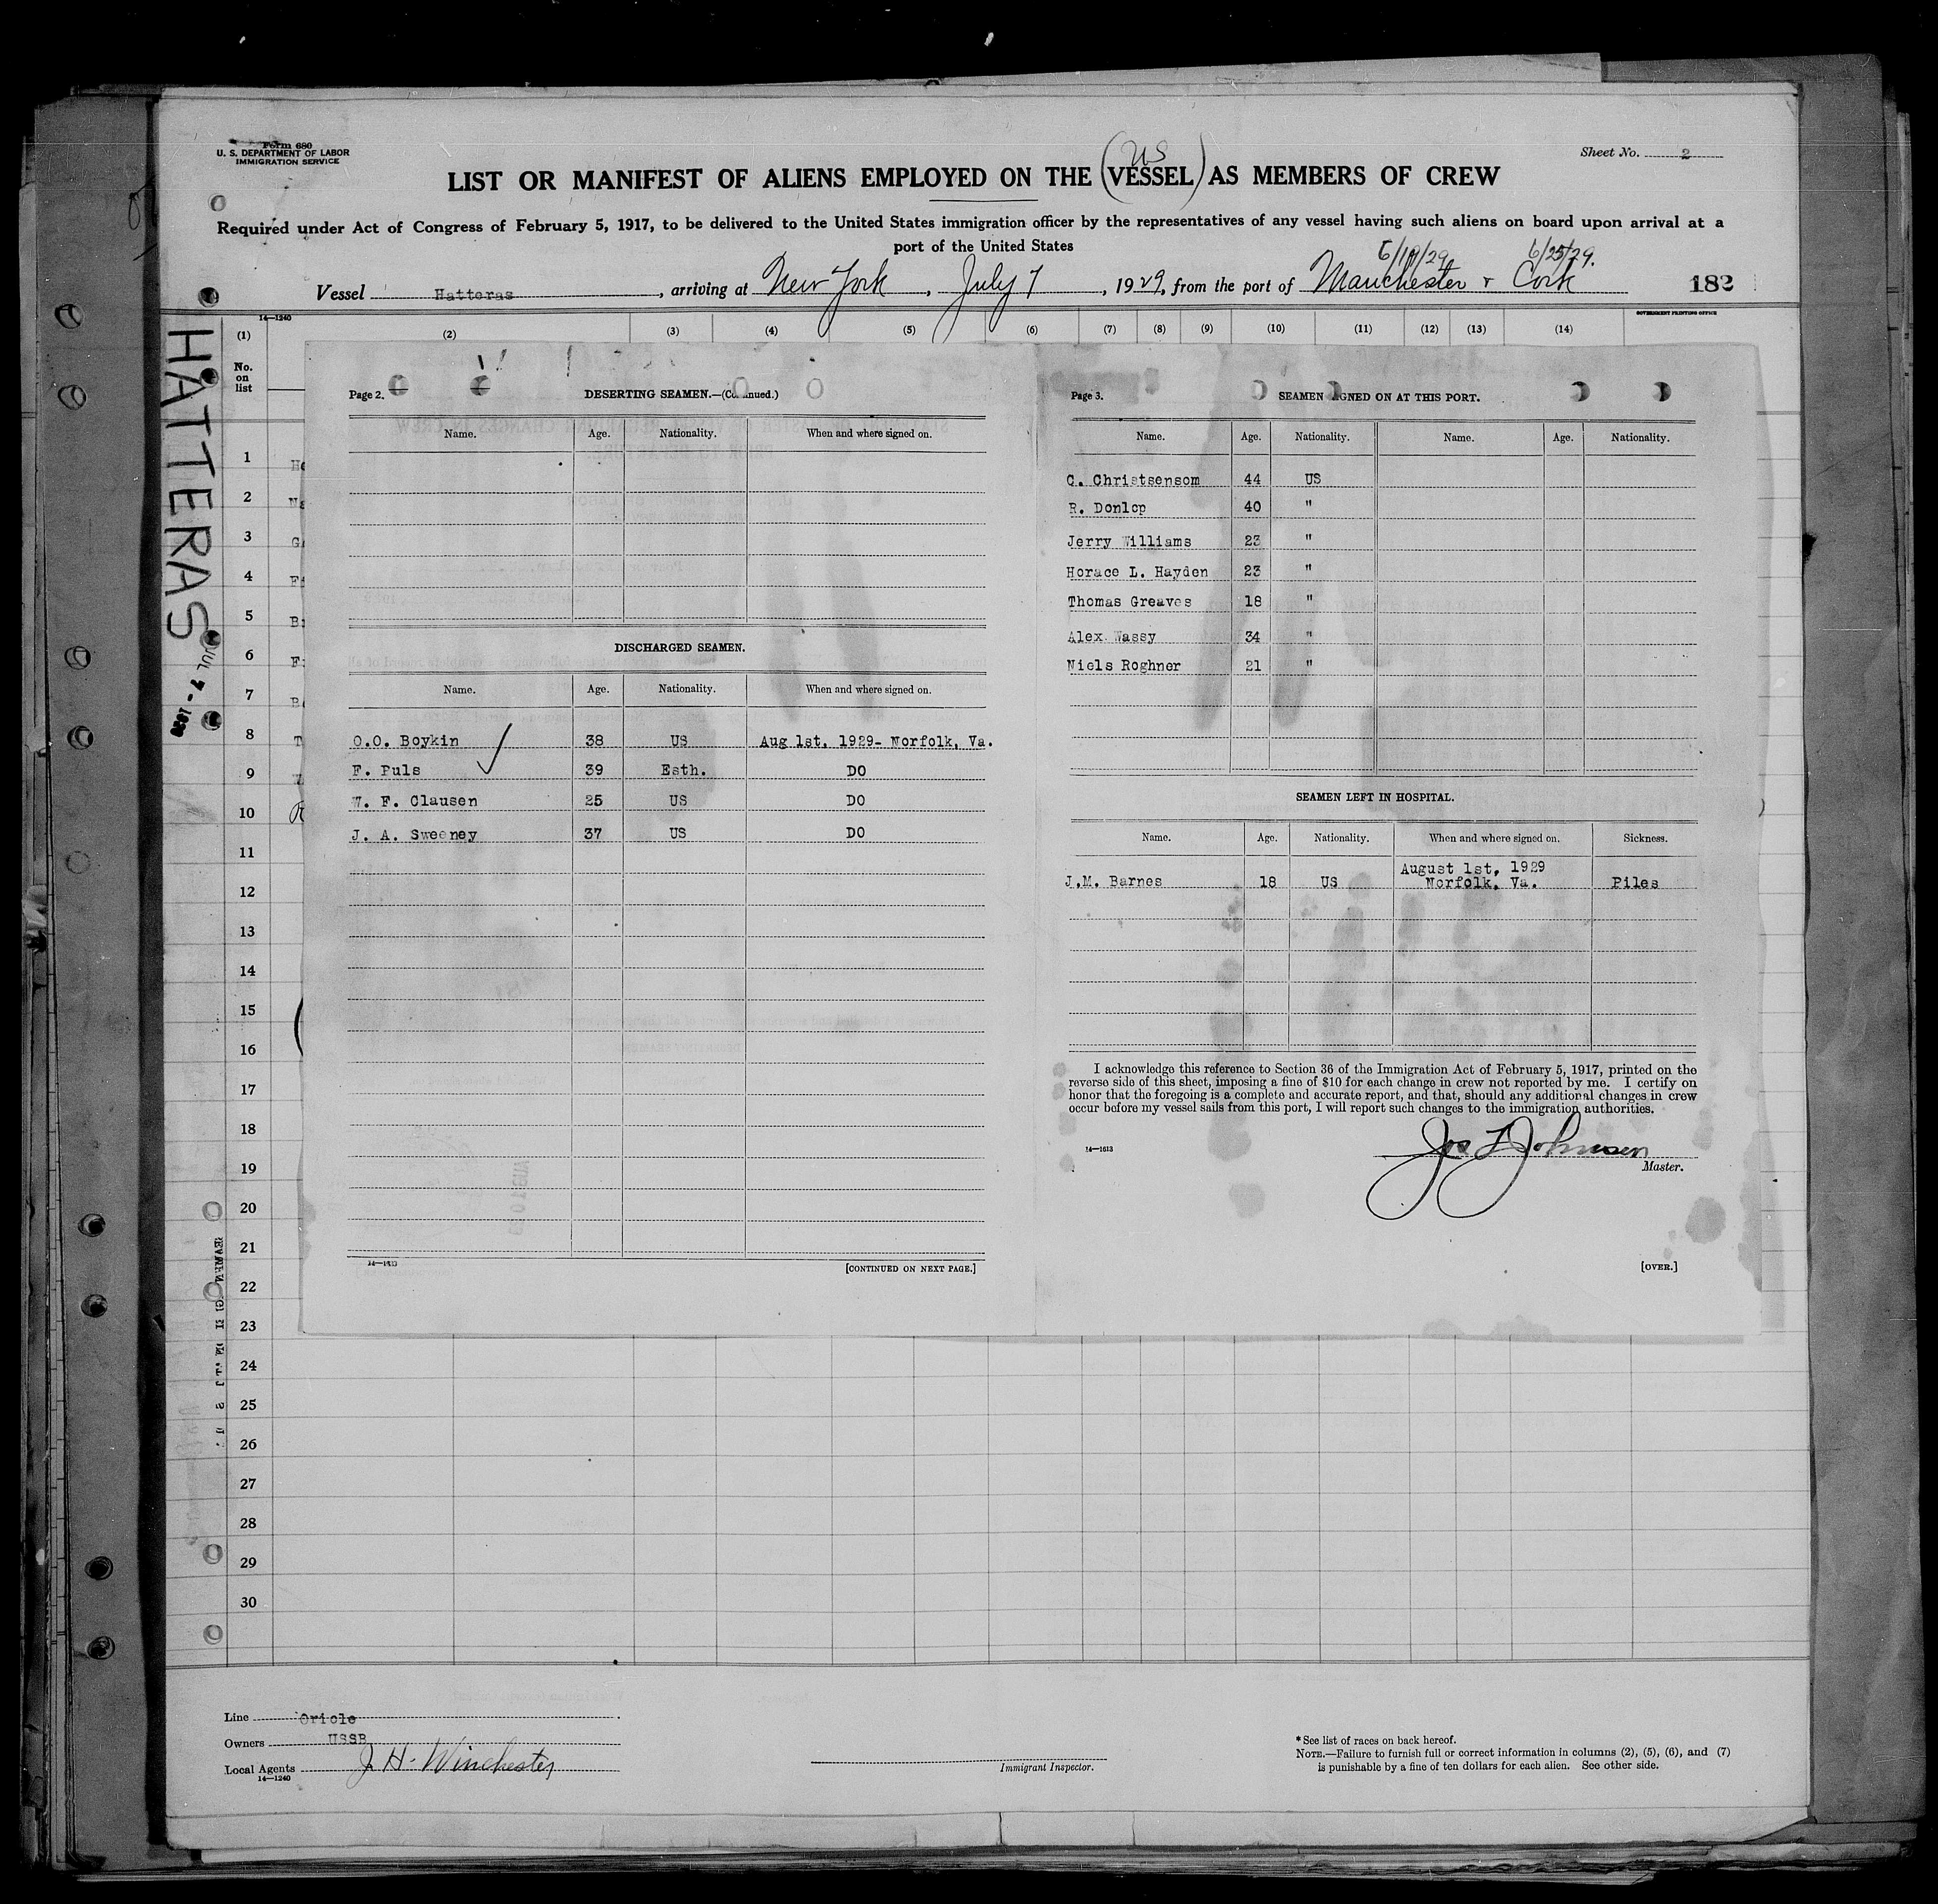 Form 680
U. S. DEPARTMENT OF LABOR
IMMIGRATION SERVICE
Sheet No. 2
US
LIST OR MANIFEST OF ALIENS EMPLOYED ON THE (VESSEL) AS MEMBERS OF CREW
Required under Act of Congress of February 5, 1917, to be delivered to the United States immigration officer by the representatives of any vessel having such aliens on board upon arrival at a
port of the United States
6/25/29.
Vessel Hatteras, arriving at New York, July 7, 1929, from the port of Manchester & Cork
182
14—1240
GOVERNMENT PRINTING OFFICE
(1) (2) (3) (4) (5) (6) (7) (8) (9) (10) (11) (12) (13) (14)
No. on list
HATTERAS
Page 2.
DESERTING SEAMEN.—(Continued.)
Name. Age. Nationality. When and where signed on.
DISCHARGED SEAMEN.
Name. Age. Nationality. When and where signed on.
O.O. Boykin 38 US Aug 1st, 1929- Norfolk, Va.
F. Puls 39 Esth. DO
W. F. Clausen 25 US DO
J. A. Sweeney 37 US DO
14—1613
[CONTINUED ON NEXT PAGE.]
Page 3.
SEAMEN SIGNED ON AT THIS PORT.
Name. Age. Nationality. Name. Age. Nationality.
C. Christsensom 44 US
R. Donlop 40 "
Jerry Williams 23 "
Horace L. Hayden 23 "
Thomas Greaves 18 "
Alex Wassy 34 "
Niels Roghner 21 "
SEAMEN LEFT IN HOSPITAL.
Name. Age. Nationality. When and where signed on. Sickness.
August 1st, 1929
J.M. Barnes 18 US Norfolk, Va. Piles
I acknowledge this reference to Section 36 of the Immigration Act of February 5, 1917, printed on the
reverse side of this sheet, imposing a fine of $10 for each change in crew not reported by me. I certify on
honor that the foregoing is a complete and accurate report, and that, should any additional changes in crew
occur before my vessel sails from this port, I will report such changes to the immigration authorities.
Jos L Johnsen
14—1613
Master.
[OVER.]
1
2
3
4
5
6
7
8
9
10
11
12
13
14
15
16
17
18
19
20
21
22
23
24
25
26
27
28
29
30
Line Oriole
Owners USSB
Local Agents J. H. Winchester
14—1240
Immigrant Inspector.
* See list of races on back hereof.
NOTE.—Failure to furnish full or correct information in columns (2), (5), (6), and (7)
is punishable by a fine of ten dollars for each alien. See other side.